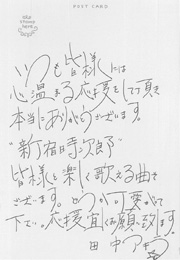 POST CARD
いつも皆様には
心温まる応援をして頂き
本当にありがとうございます。
"新宿時次郎"
皆様と楽しく歌える曲で
ございます。どうか可愛がって
下さい。応援宜しくお願い致します。
田中アキラ